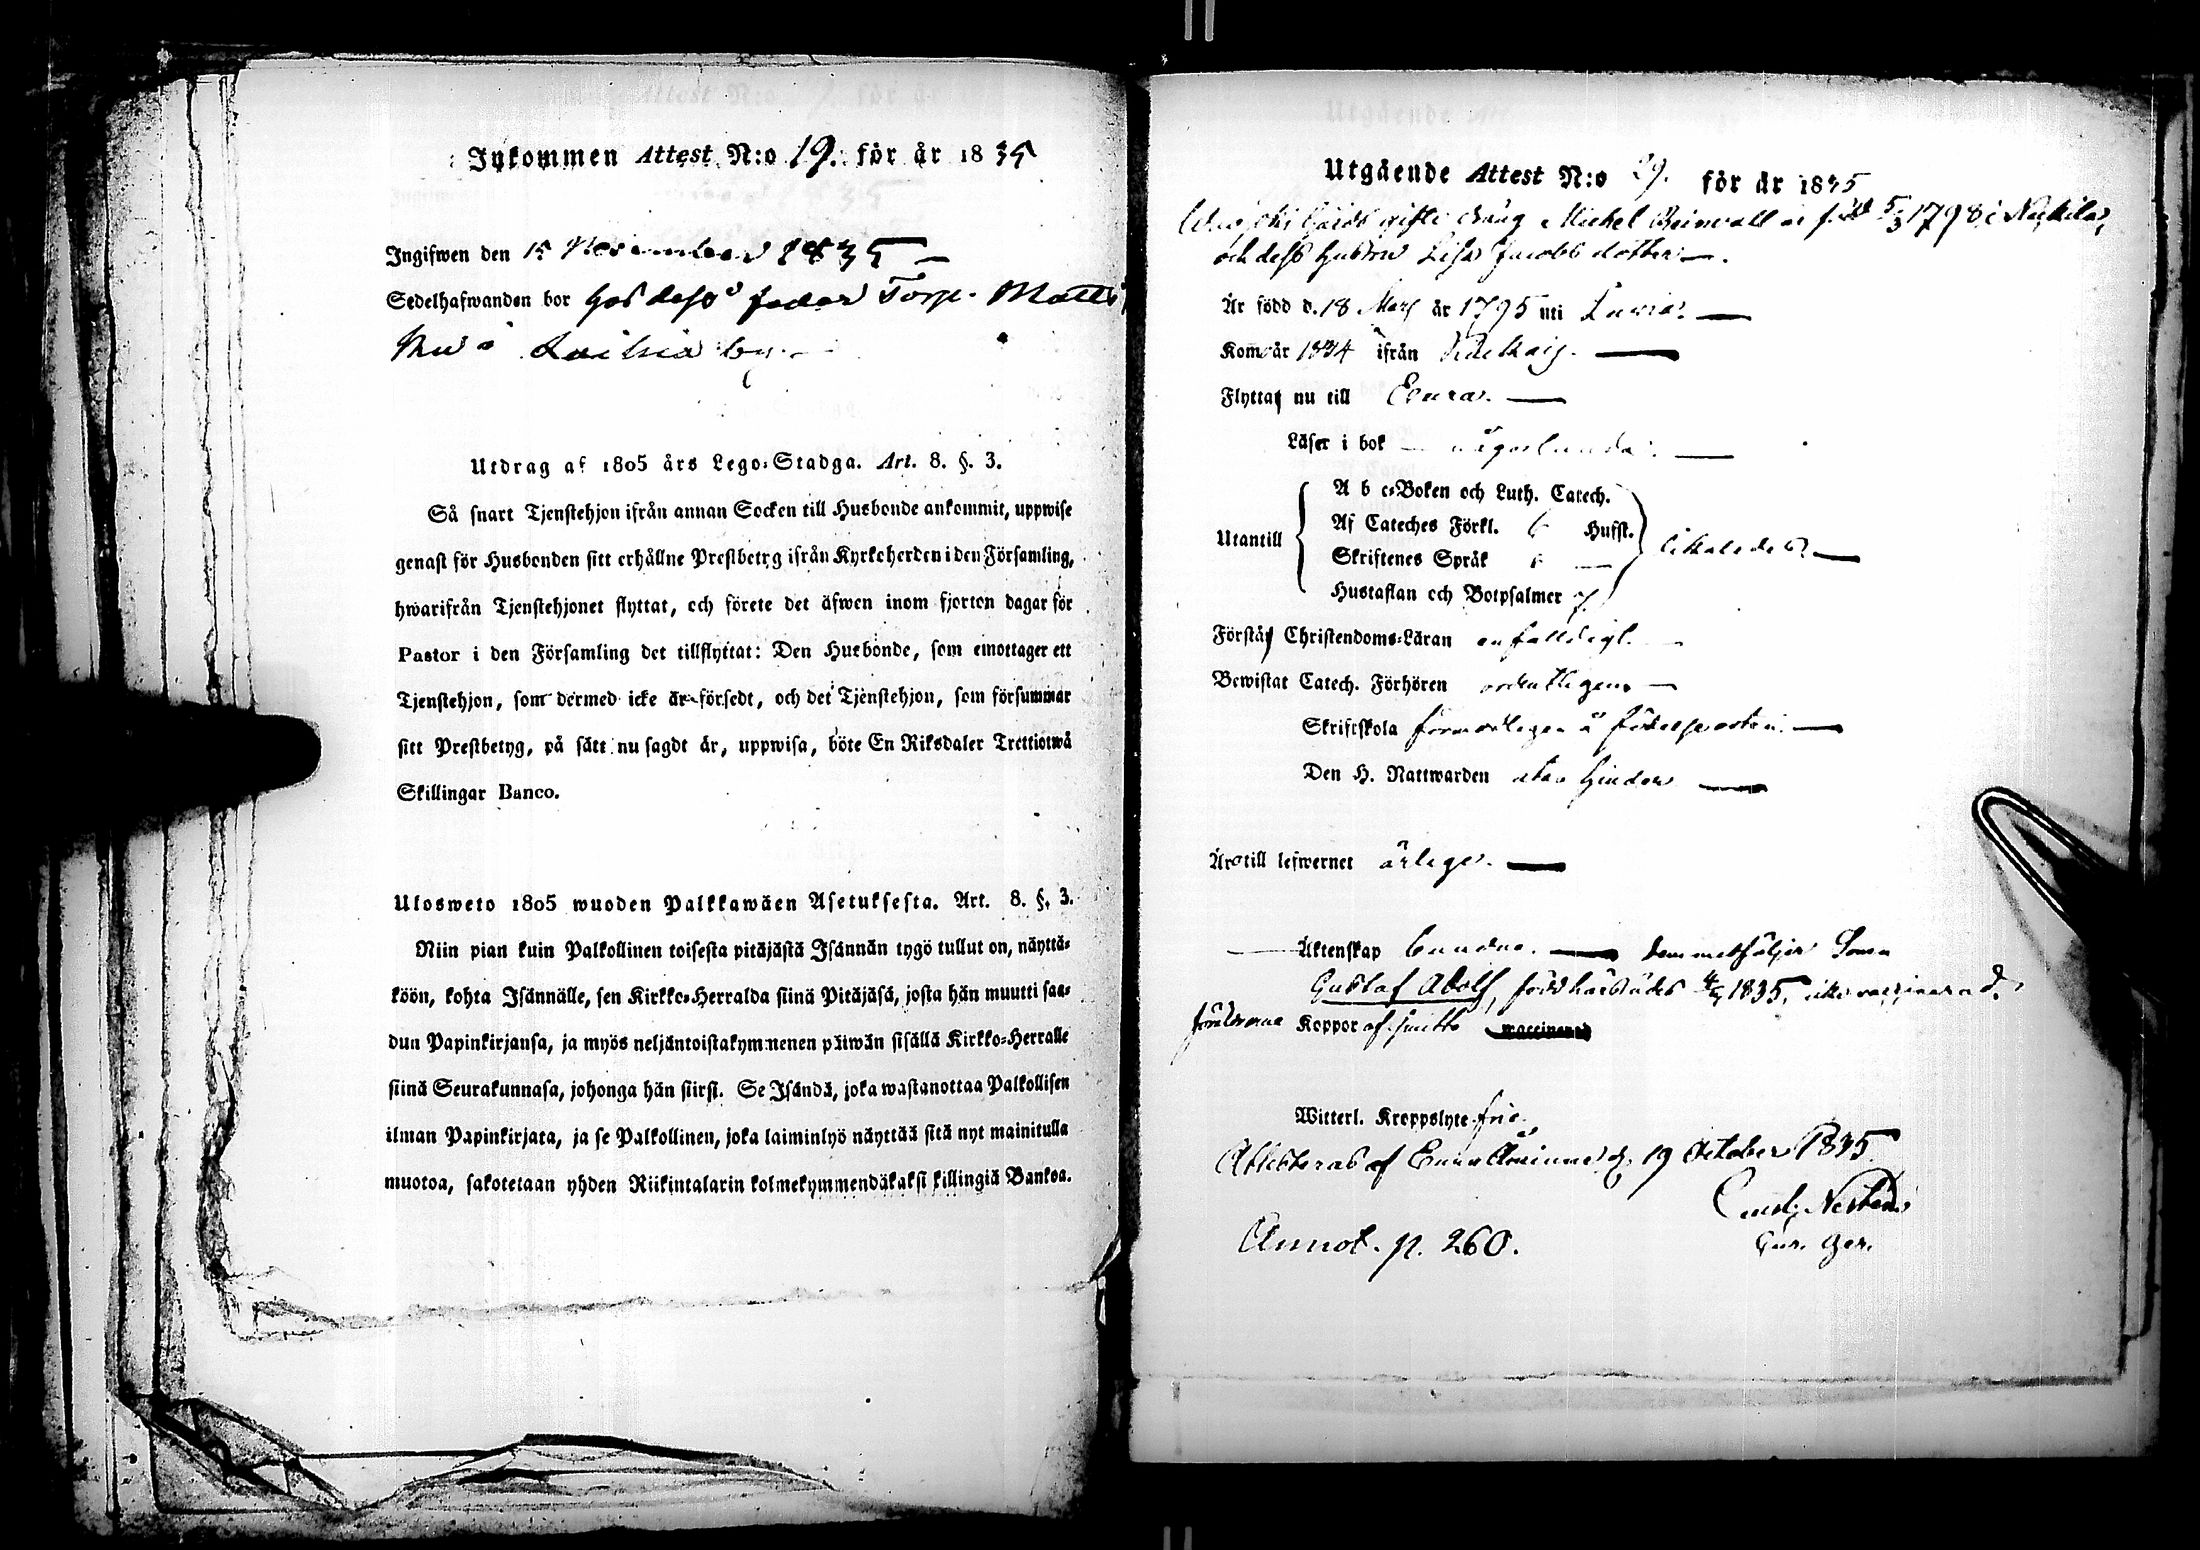 Inkommen Attest N:o 19. för år 1835
Ingifwen den 15 November 1835
Sedelhafwanden bor hos dess fader Torp. Matts
Laitsia by.
Utdrag af 1805 års Lego-Stadga. Art. 8. §. 3.
Så snart Tjenstehjon ifrån annan Socken till Husbonde ankommit, uppwise
genast för Husbonden sitt erhållne Prestbetyg ifrån Kyrkoherden i den Församling,
hwarifrån Tjenstehjonet flyttat, och förete det äfwen inom fjorton dagar för
Pastor i den Församling det tillflyttat: Den Husbonde, som emottager ett
Tjenstehjon, som dermed icke är försedt, och det Tjenstehjon, som försummar
sitt Prestbetyg, på sätt nu sagdt är, uppwisa, böte En Riksdaler Trettiotwå
Skillingar Banco.
Ulosweto 1805 wuoden Palkkawäen Asetuksesta. Art. 8. §. 3.
Niin pian kuin Palkollinen toisesta pitäjästä Isännän tygö tullut on, näyttä-
köön, kohta Isännälle, sen Kirkko-Herralda siinä Pitäjäsä, josta hän muutti saa-
dun Papinkirjansa, ja myös neljäntoistakymmenen päiwän sisällä Kirkko-Herralle
siinä Seurakunnasa, johonga hän siirsi. Se Isändä, joka wastanottaa Palkollisen
ilman Papinkirjata, ja se Palkollinen, joka laiminlyö näyttää sitä nyt mainitulla
muotoa, sakotetaan yhden Riikintalarin kolmekymmendäkaksi killingiä Bankoa.
Utgående Attest N:o 29. för år 1835
gifte dräng Michel Reinvall är född 5/3 1798 i Nykila,
och dess hustru Lisa Jacobsdotter.
Är född d. 18 Mars år 1795 uti Luvia.
Kom år 1834 ifrån
Flytta nu till Eura.
Läser i bok någorlunda.
A b c-Boken och Luth. Catech.
Af Cateches Förkl. 6 Hufst.
Utantill likaledes.
Skriftenes Språk
Hustaflan och Botpsalmer 7.
Förstå Christendoms-Läran enfalldigt.
Bewistat Catech. Förhören ordentligen
Skriftskola förmodligen å födelseorten.
Den H. Nattwarden utan hinder
Äro till lefwernet ärliga.
Äktenskap bundne. dem medföljer Sonen
Gustaf Adolf, född härstädes 1835, icke vaccinerad.
föräldrarne Koppor af smitto vaccinerad
Witterl. Kroppslyte frie.
Attesteras af Eura d. 19 October 1835
Annot. p. 260.